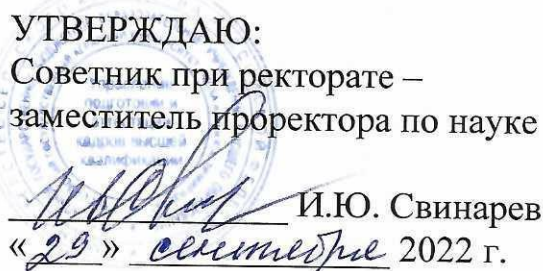 УТВЕРЖДАЮ:
Советник при ректорате –
заместитель проректора по науке
И.Ю. Свинарев
«29» сентября 2022 г.